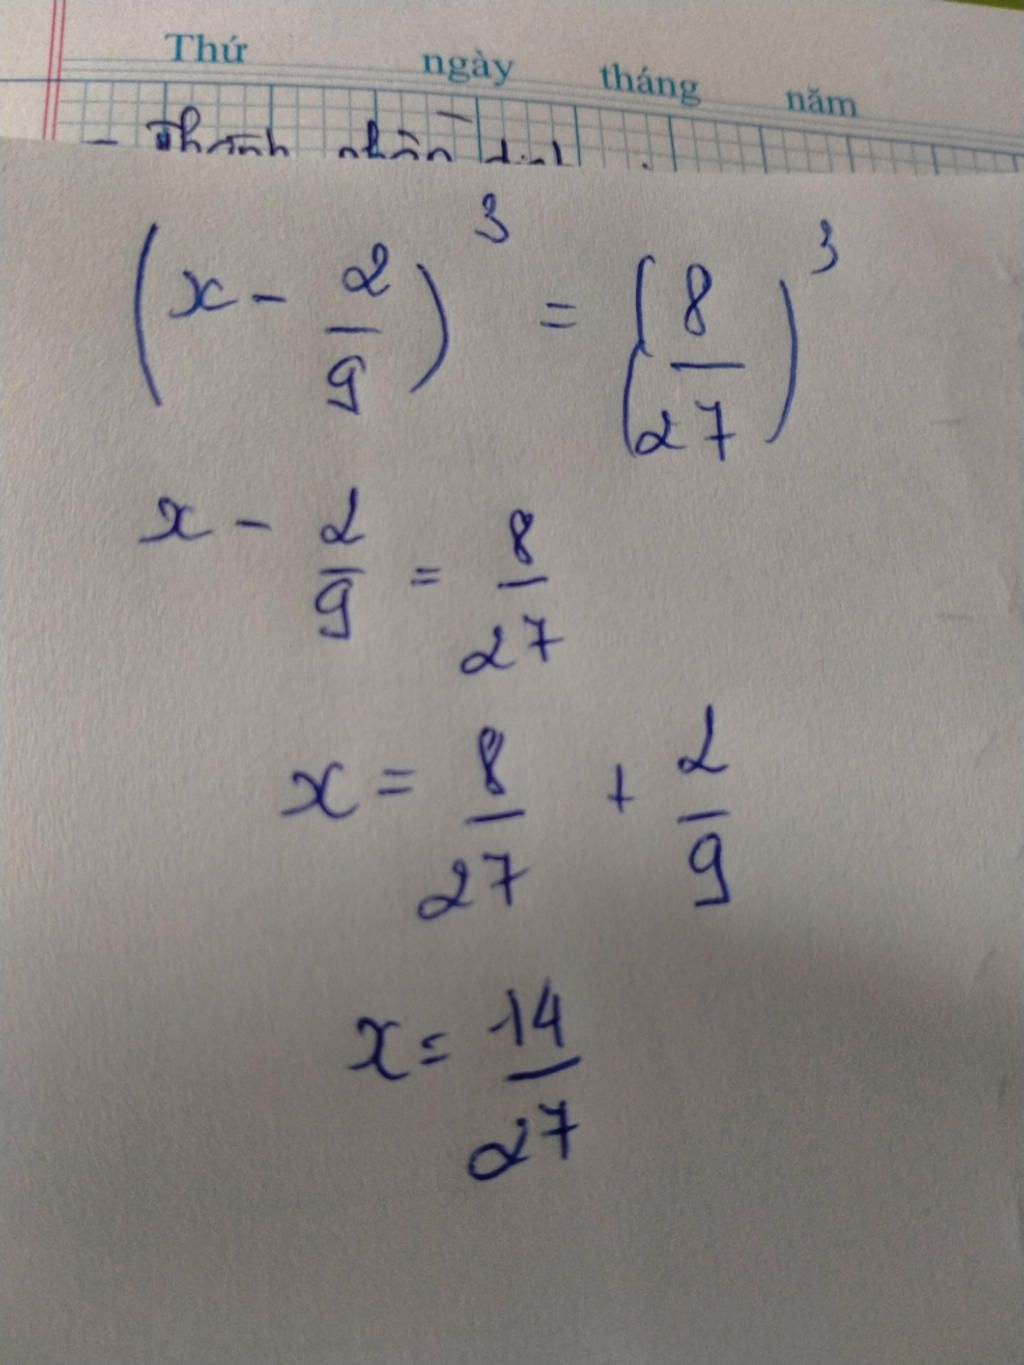 Thứ ngày tháng năm
(x - 2/9)³ = (8/27)³
x - 2/9 = 8/27
x = 8/27 + 2/9
x = 14/27